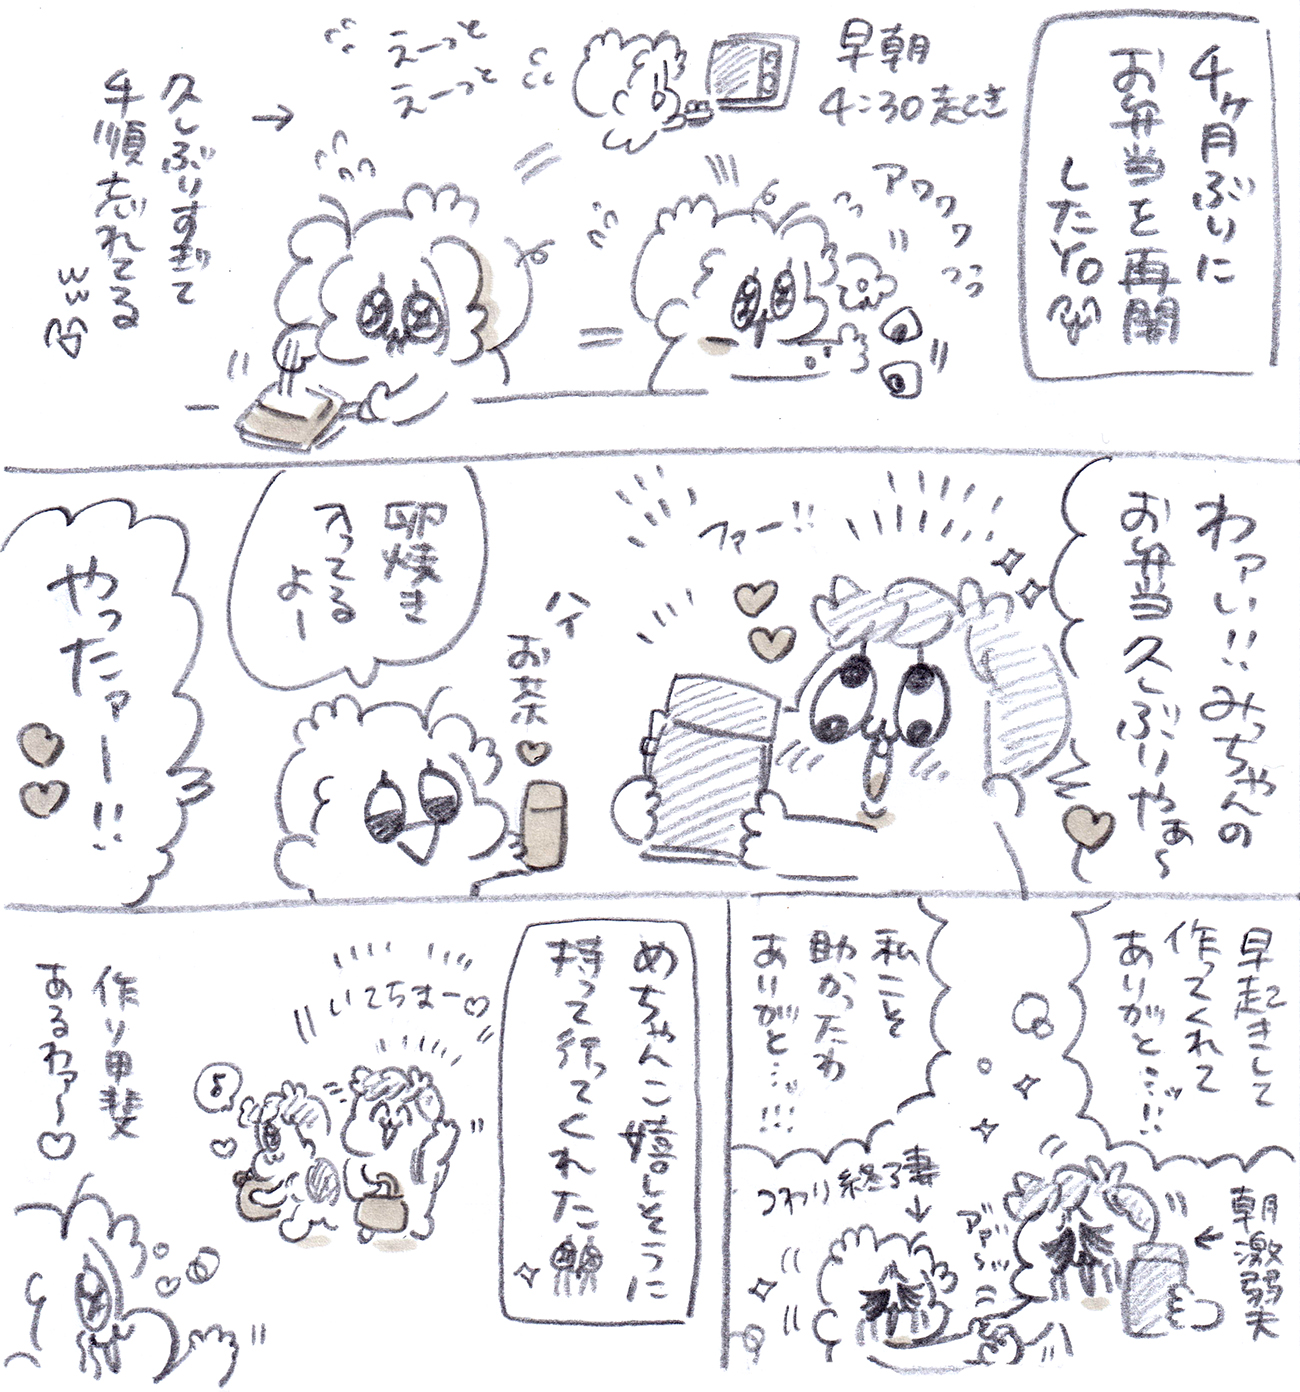 4ヶ月ぶりに
お弁当を再開
したYO
早朝
4:30起き
えーっと
えーっと
アワワワワ
久しぶりすぎて
手順忘れてる
わァい!!みっちゃんの
お弁当久しぶりやぁ〜
ファー!!
ハイ
お茶
卵焼き
入ってるよー
やったァー!!
早起きして
作ってくれて
ありがと…!!
私こそ
助かったわ
ありがと…!!!
朝激弱夫
つわり終了妻
めちゃんこ嬉しそうに
持って行ってくれた
いてちまー♡
作り甲斐
あるわァ〜♡